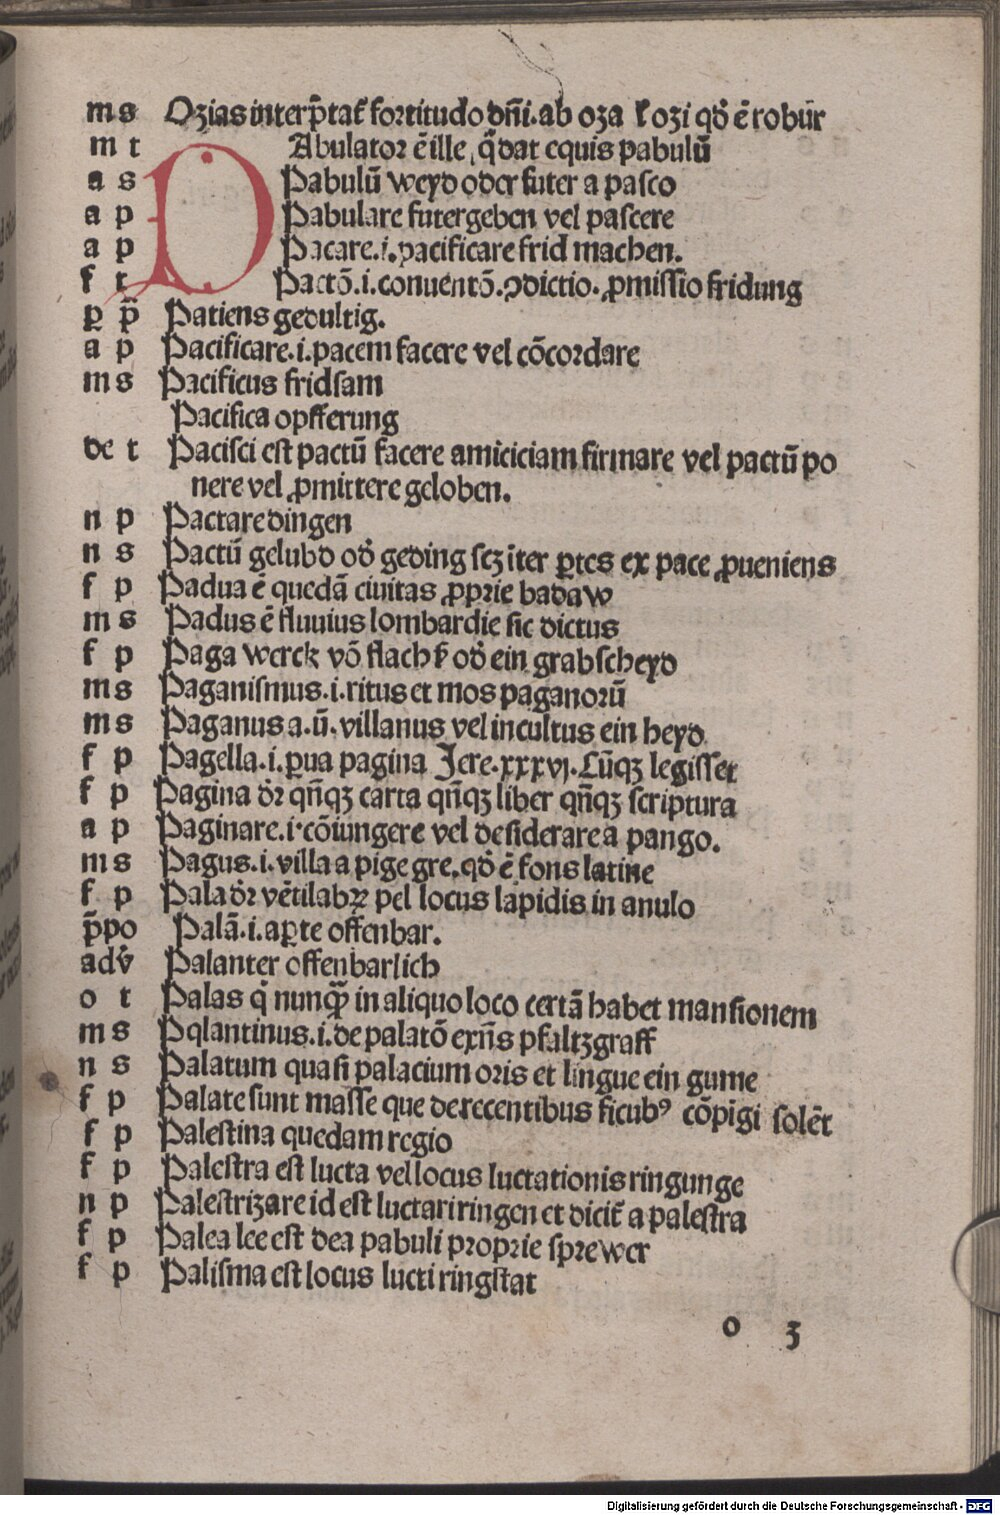 m s Ozias interp̃tat᷑ fortitudo dñi. ab oza ł ozi qd̓ ẽ robur
m t PAbulator ẽ ille, q̓ dat equis pabulũ
a s Pabulũ weyd oder futer a pasco
a p Pabulare futergeben vel pascere
a p Pacare .i. pacificare frid machen.
f t Pactõ .i. conuentõ. ꝯdictio. ꝓmissio fridung
ꝑ p̃ Patiens gedultig.
a p Pacificare .i. pacem facere vel cõcordare
m s Pacificus fridsam
Pacifica opfferung
de t Pacisci est pactũ facere amiciciam firmare vel pactũ po
nere vel ꝓmittere geloben.
n p Pactare dingen
n s Pactũ gelubd od̓ geding scz ĩter ꝑtes ex pace ꝓueniens
f p Padua ẽ quedã ciuitas ꝓprie badaw
m s Padus ẽ fluuius lombardie sic dictus
f p Paga werck võ flachß od̓ ein grabscheyd
m s Paganismus .i. ritus et mos paganorũ
m s Paganus a. ũ. villanus vel incultus ein heyd
f p Pagella .i. ꝑua pagina Jere. xxxvj. Cũqꝫ legisset
f p Pagina dr̓ qñqꝫ carta qñqꝫ liber qñqꝫ scriptura
a p Paginare .i. cõiungere vel desiderare a pango.
m s Pagus .i. villa a pige gre. qd̓ ẽ fons latine
f p Pala dr̓ vẽtilabꝝ pel locus lapidis in anulo
p̃po Palã .i. aꝑte offenbar.
adv̓ Palanter offenbarlich
o t Palas q̓ nunqꝫ̃ in aliquo loco certã habet mansionem
m s Pqlantinus .i. de palatõ exñs pfaltzgraff
n s Palatum quasi palacium oris et lingue ein gume
f p Palate sunt masse que de recentibus ficubꝰ cõpĩgi solẽt
f p Palestina quedam regio
f p Palestra est lucta vel locus luctationis ringunge
n p Palestrizare id est luctari ringen et dicit᷑ a palestra
f p Palea lee est dea pabuli proprie sprewer
f p Palisma est locus lucti ringstat
o 3
Digitalisierung gefördert durch die Deutsche Forschungsgemeinschaft - DFG